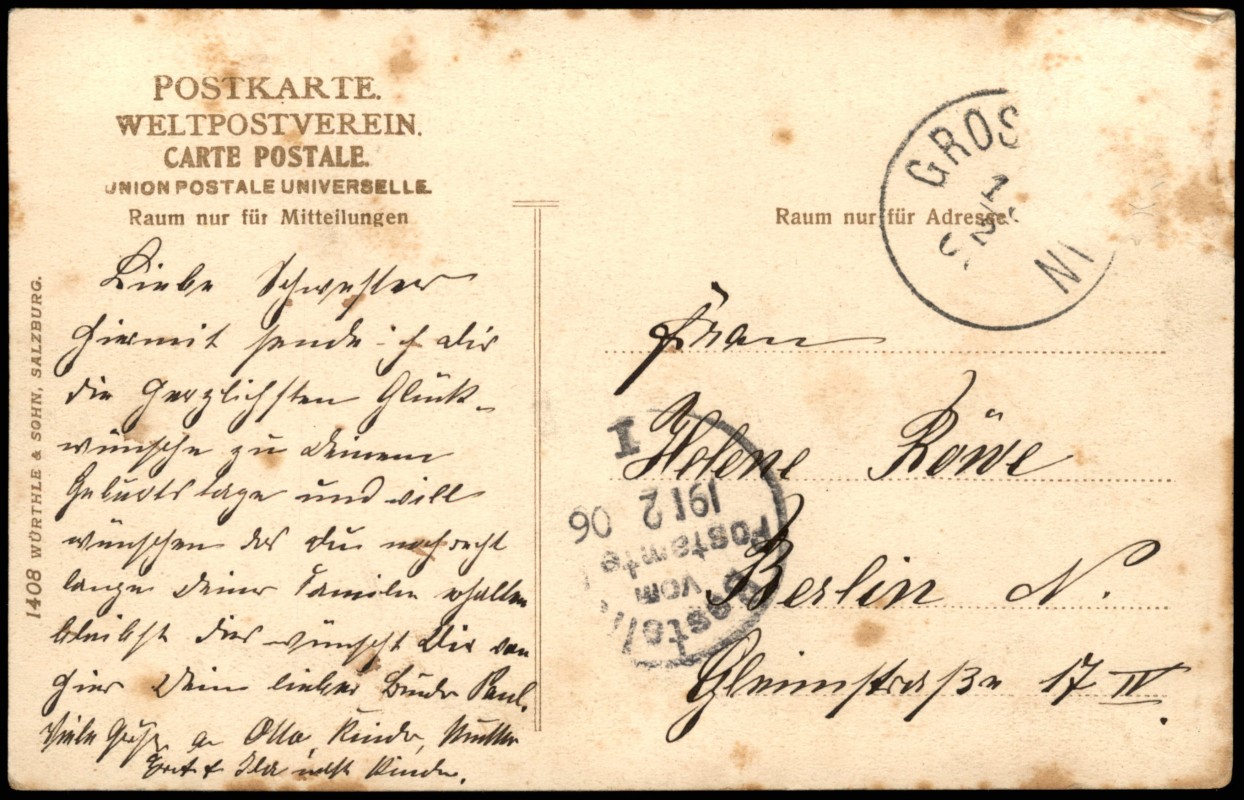 POSTKARTE.
WELTPOSTVEREIN.
CARTE POSTALE.
UNION POSTALE UNIVERSELLE.
Raum nur für Mitteilungen
Liebe Schwester
Hiermit sende ich Dir
die herzlichsten Glück-
wünsche zu Deinem
Geburtstage und will
wünschen das Du noch recht
lange Deiner Familie erhalten
bleibst das wünscht Dir von
hier Dein lieber Bruder Paul.
Viele Grüße an Otto, Kinder, Mutter
& Ida nebst Kinder.
1408 WÜRTHLE & SOHN, SALZBURG.
Raum nur für Adresse
GROS
NI
Frau
Helene Röwe
Berlin N.
Gleimstraße 17 IV.
I
1912 06
Bestellt
vom
Postamte